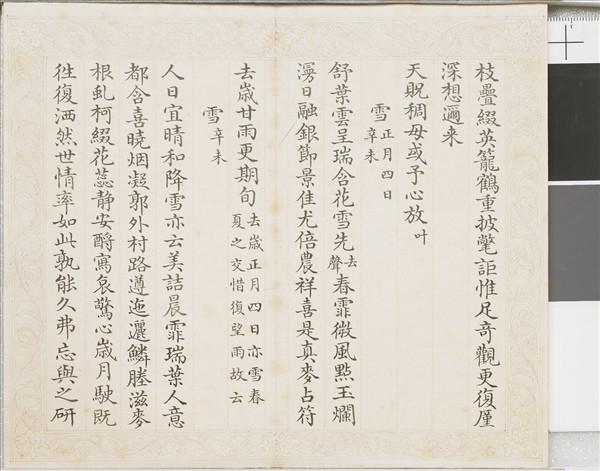 枝疊綴英籠鶴重披氅詎惟足奇觀更復廑
深想邇来
天貺稠毋或予心放叶
雪正月四日
辛未
舒葉雲呈瑞含花雪先去聲春霏微風點玉爛
漫日融銀節景佳尤倍農祥喜是真麥占符
去歲甘雨更期旬去歲正月四日亦雪春
夏之交惜復望雨故云
雪辛未
人日宜晴和降雪亦云美詰晨霏瑞葉人意
都含喜曉烟凝郭外村路遵迤邐鱗塍滋麥
根虬柯綴花蕊静安酹寫哀驚心歲月駛既
徃復洒然世情率如此孰能久弗忘與之研